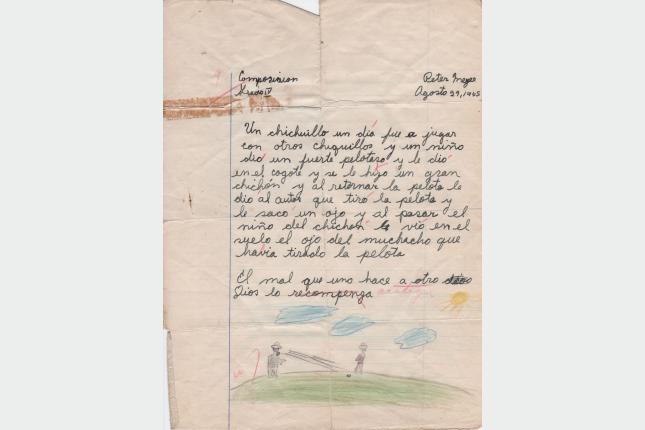 Composicion
Grado IV
Peter Meyer
Agosto 29, 1965
Un chichuillo un día fue a jugar
con otros chiquillos y un niño
dió un fuerte pelotaso y le dió
en el cogote y se le hizo un gran
chichón y al retornar la pelota le
dio al autor que tiró la pelota y
le sacó un ojo y al pasar el
niño del chichón le vió en el
suelo el ojo del muchacho que
havia tirado la pelota
El mal que uno hace a otro
Dios lo recompenza